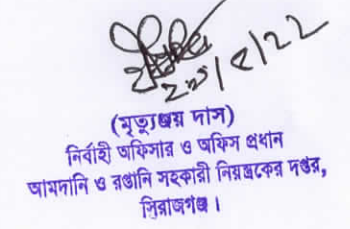 (মৃত্যুঞ্জয় দাস)
নির্বাহী অফিসার ও অফিস প্রধান
আমদানি ও রপ্তানি সহকারী নিয়ন্ত্রকের দপ্তর,
সিরাজগঞ্জ।